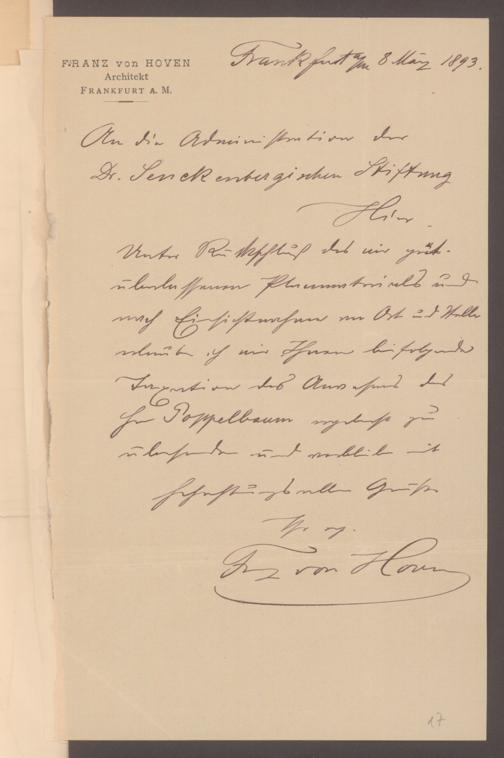 FRANZ von HOVEN
Architekt
FRANKFURT A. M.
Frankfurt a/m 8 März 1893.
An die Administration der
Dr. Senckenbergischen Stiftung
Hier.
Unter Rückschluß des mir gütigst
überlassenen Planmaterials und
nach Einsichtnahme an Ort und Stelle
erlaube ich mir Ihnen beifolgende
des des
Hr Poppelbaum ergebenst zu
übersenden und verbleibe mit
hochachtungsvollem Gruße
Ihr erg.
Frz von Hoven
17